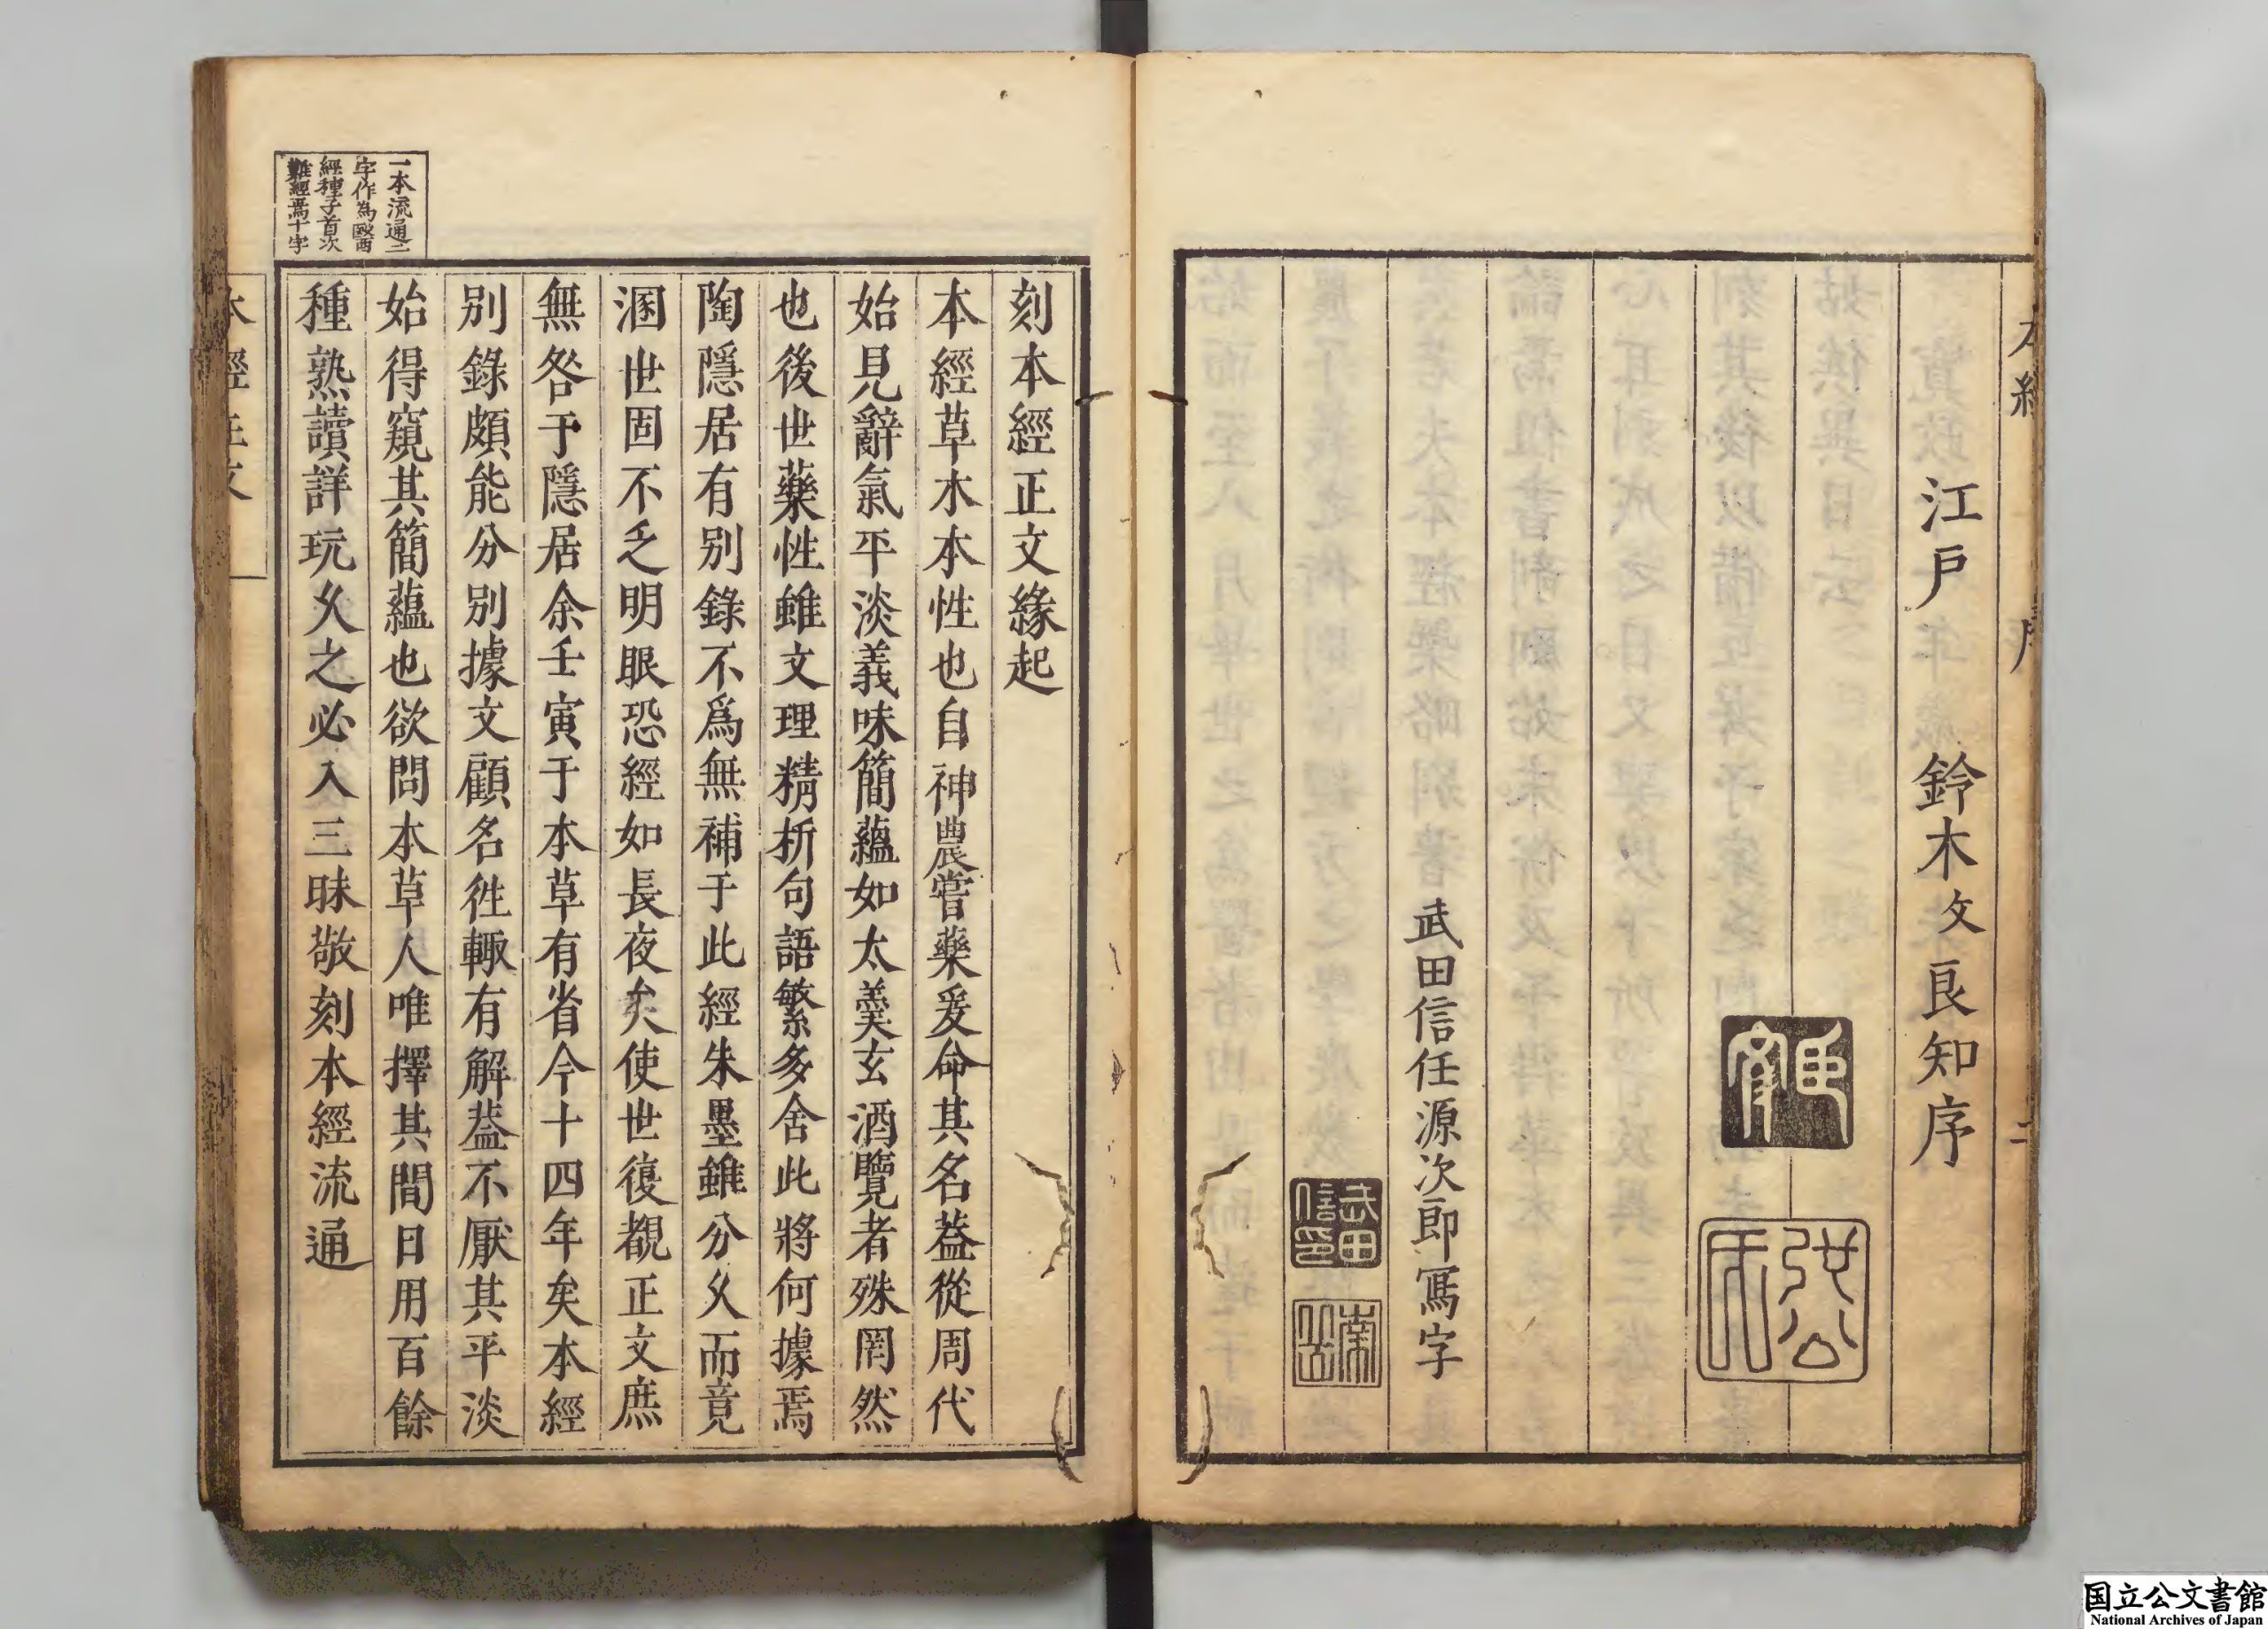 江戶 鈴木文良知序
武田信任源次郎寫字
刻本經正文緣起
本經草木本性也自神農嘗藥爰命其名蓋從周代
始見辭氣平淡義味簡蘊如太羹玄酒覽者殊罔然
也後世藥性雖文理精析句語繁多舍此將何據焉
陶隱居有別錄不爲無補于此經朱墨雖分久而竟
溷世固不乏明眼恐經如長夜矣使世復覩正文庶
無咎于隱居余壬寅于本草有省今十四年矣本經
別錄頗能分別據文顧名徃輙有解蓋不厭其平淡
始得窺其簡蘊也欲問本草人唯擇其間日用百餘
種熟讀詳玩久之必入三昧敬刻本經流通
一本流通二
字作為毉西
經種子首次
難經焉十字
国立公文書館
National Archives of Japan